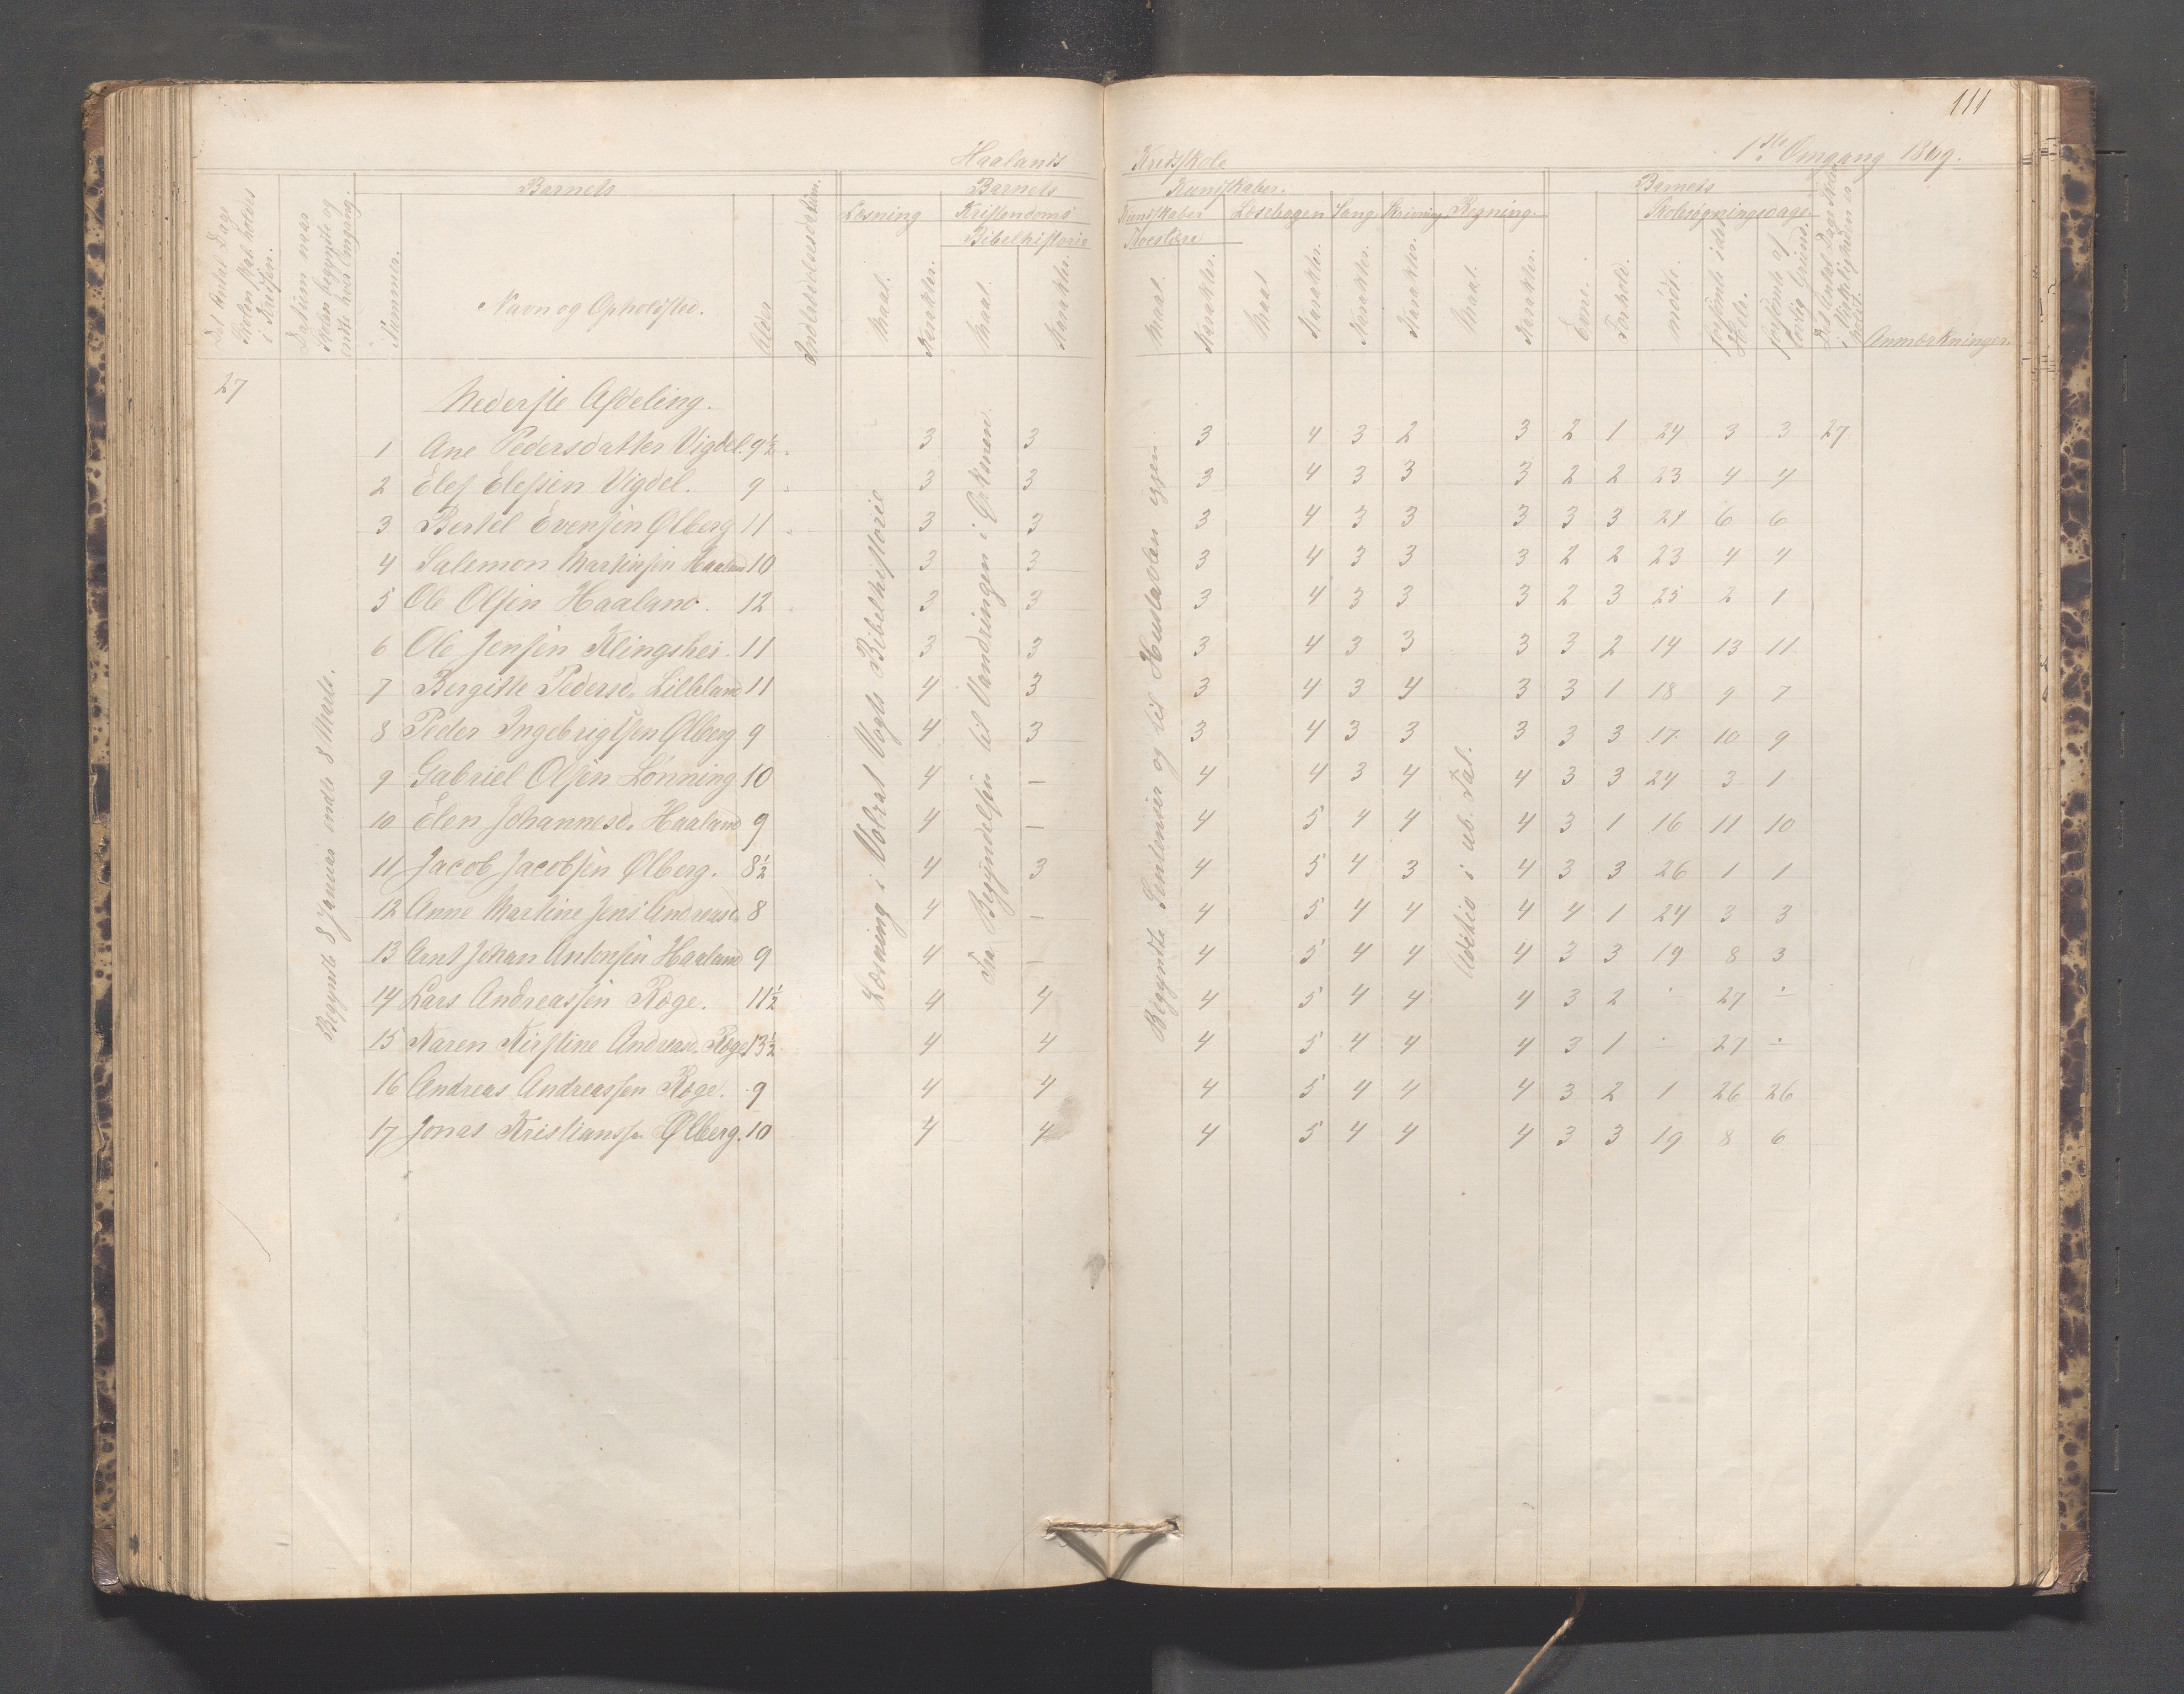 111
Haalands Kredsskole 1ste Omgang 1869.
Det Antal Dage Skolen skal holdes i Kredsen.
Datum naar Skolen begyndte og endte hver Omgang.
Barnets
Nummer.
Navn og Opholdssted.
Alder
Indtrædelsesdatum.
Barnets Kundskaber.
Læsning
Maal.
Karakter.
Kristendoms Kundskaber
Bibelhistorie
Maal.
Karakter.
Troeslære
Maal.
Karakter.
Læsebogen
Maal
Karakter.
Sang.
Karakter.
Skrivning
Karakter.
Regning.
Maal.
Karakter.
Barnets
Evne.
Forhold.
Skolesøgningsdage.
mødte.
forsømte i det Hele.
forsømte af lovlig Grund.
Det Antal Dage Skolen i Virkeligheden er holdt.
Anmærkninger.
27
Begyndte 8 Januar endte 8 Marts.
Læsning i Volrat Vogts Bibelhistorie
Fra Begyndelsen til Vandringen i Ørkenen
Begyndte Sentenser og til Hustavlen igjen
Addition i ub. Tal.
Nederste Afdeling.
1 Ane Pedersdatter Vigdel. 9½ 3 3 3 4 3 2 3 2 1 24 3 3 27
2 Elef Elefsen Vigdel. 9 3 3 3 4 3 3 3 2 2 23 4 4
3 Bertel Evensen Ølberg 11 3 3 3 4 3 3 3 3 3 21 6 6
4 Salemon Martinsen Haaland 10 3 3 3 4 3 3 3 2 2 23 4 4
5 Ole Olsen Haaland. 12 3 3 3 4 3 3 3 2 3 25 2 1
6 Ole Jensen Klingshei. 11 3 3 3 4 3 3 3 3 2 14 13 11
7 Bergitte Pedersd. Lilleland 11 4 3 3 4 3 4 3 3 1 18 9 7
8 Peder Ingebrigtsen Ølberg 9 4 3 3 4 3 3 3 3 3 17 10 9
9 Gabriel Olsen Lønning 10 4 — 4 4 3 4 4 3 3 24 3 1
10 Elen Johannesd. Haaland 9 4 — 4 5 4 4 4 3 1 16 11 10
11 Jacob Jacobsen Ølberg. 8½ 4 3 4 5 4 3 4 3 3 26 1 1
12 Anne Martine Jens Andreasd. 8 4 — 4 5 4 4 4 4 1 24 3 3
13 Arnt Johan Antonsen Haaland 9 4 — 4 5 4 4 4 3 3 19 8 3
14 Lars Andreassen Røge. 11½ 4 4 4 5 4 4 4 3 2 ÷ 27 ÷
15 Karen Kirstine Andreasd. Røge 13½ 4 4 4 5 4 4 4 3 1 ÷ 27 ÷
16 Andreas Andreassen Røge. 9 4 4 4 5 4 4 4 3 2 1 26 26
17 Jonas Kristianssen Ølberg. 10 4 4 4 5 4 4 4 3 3 19 8 6